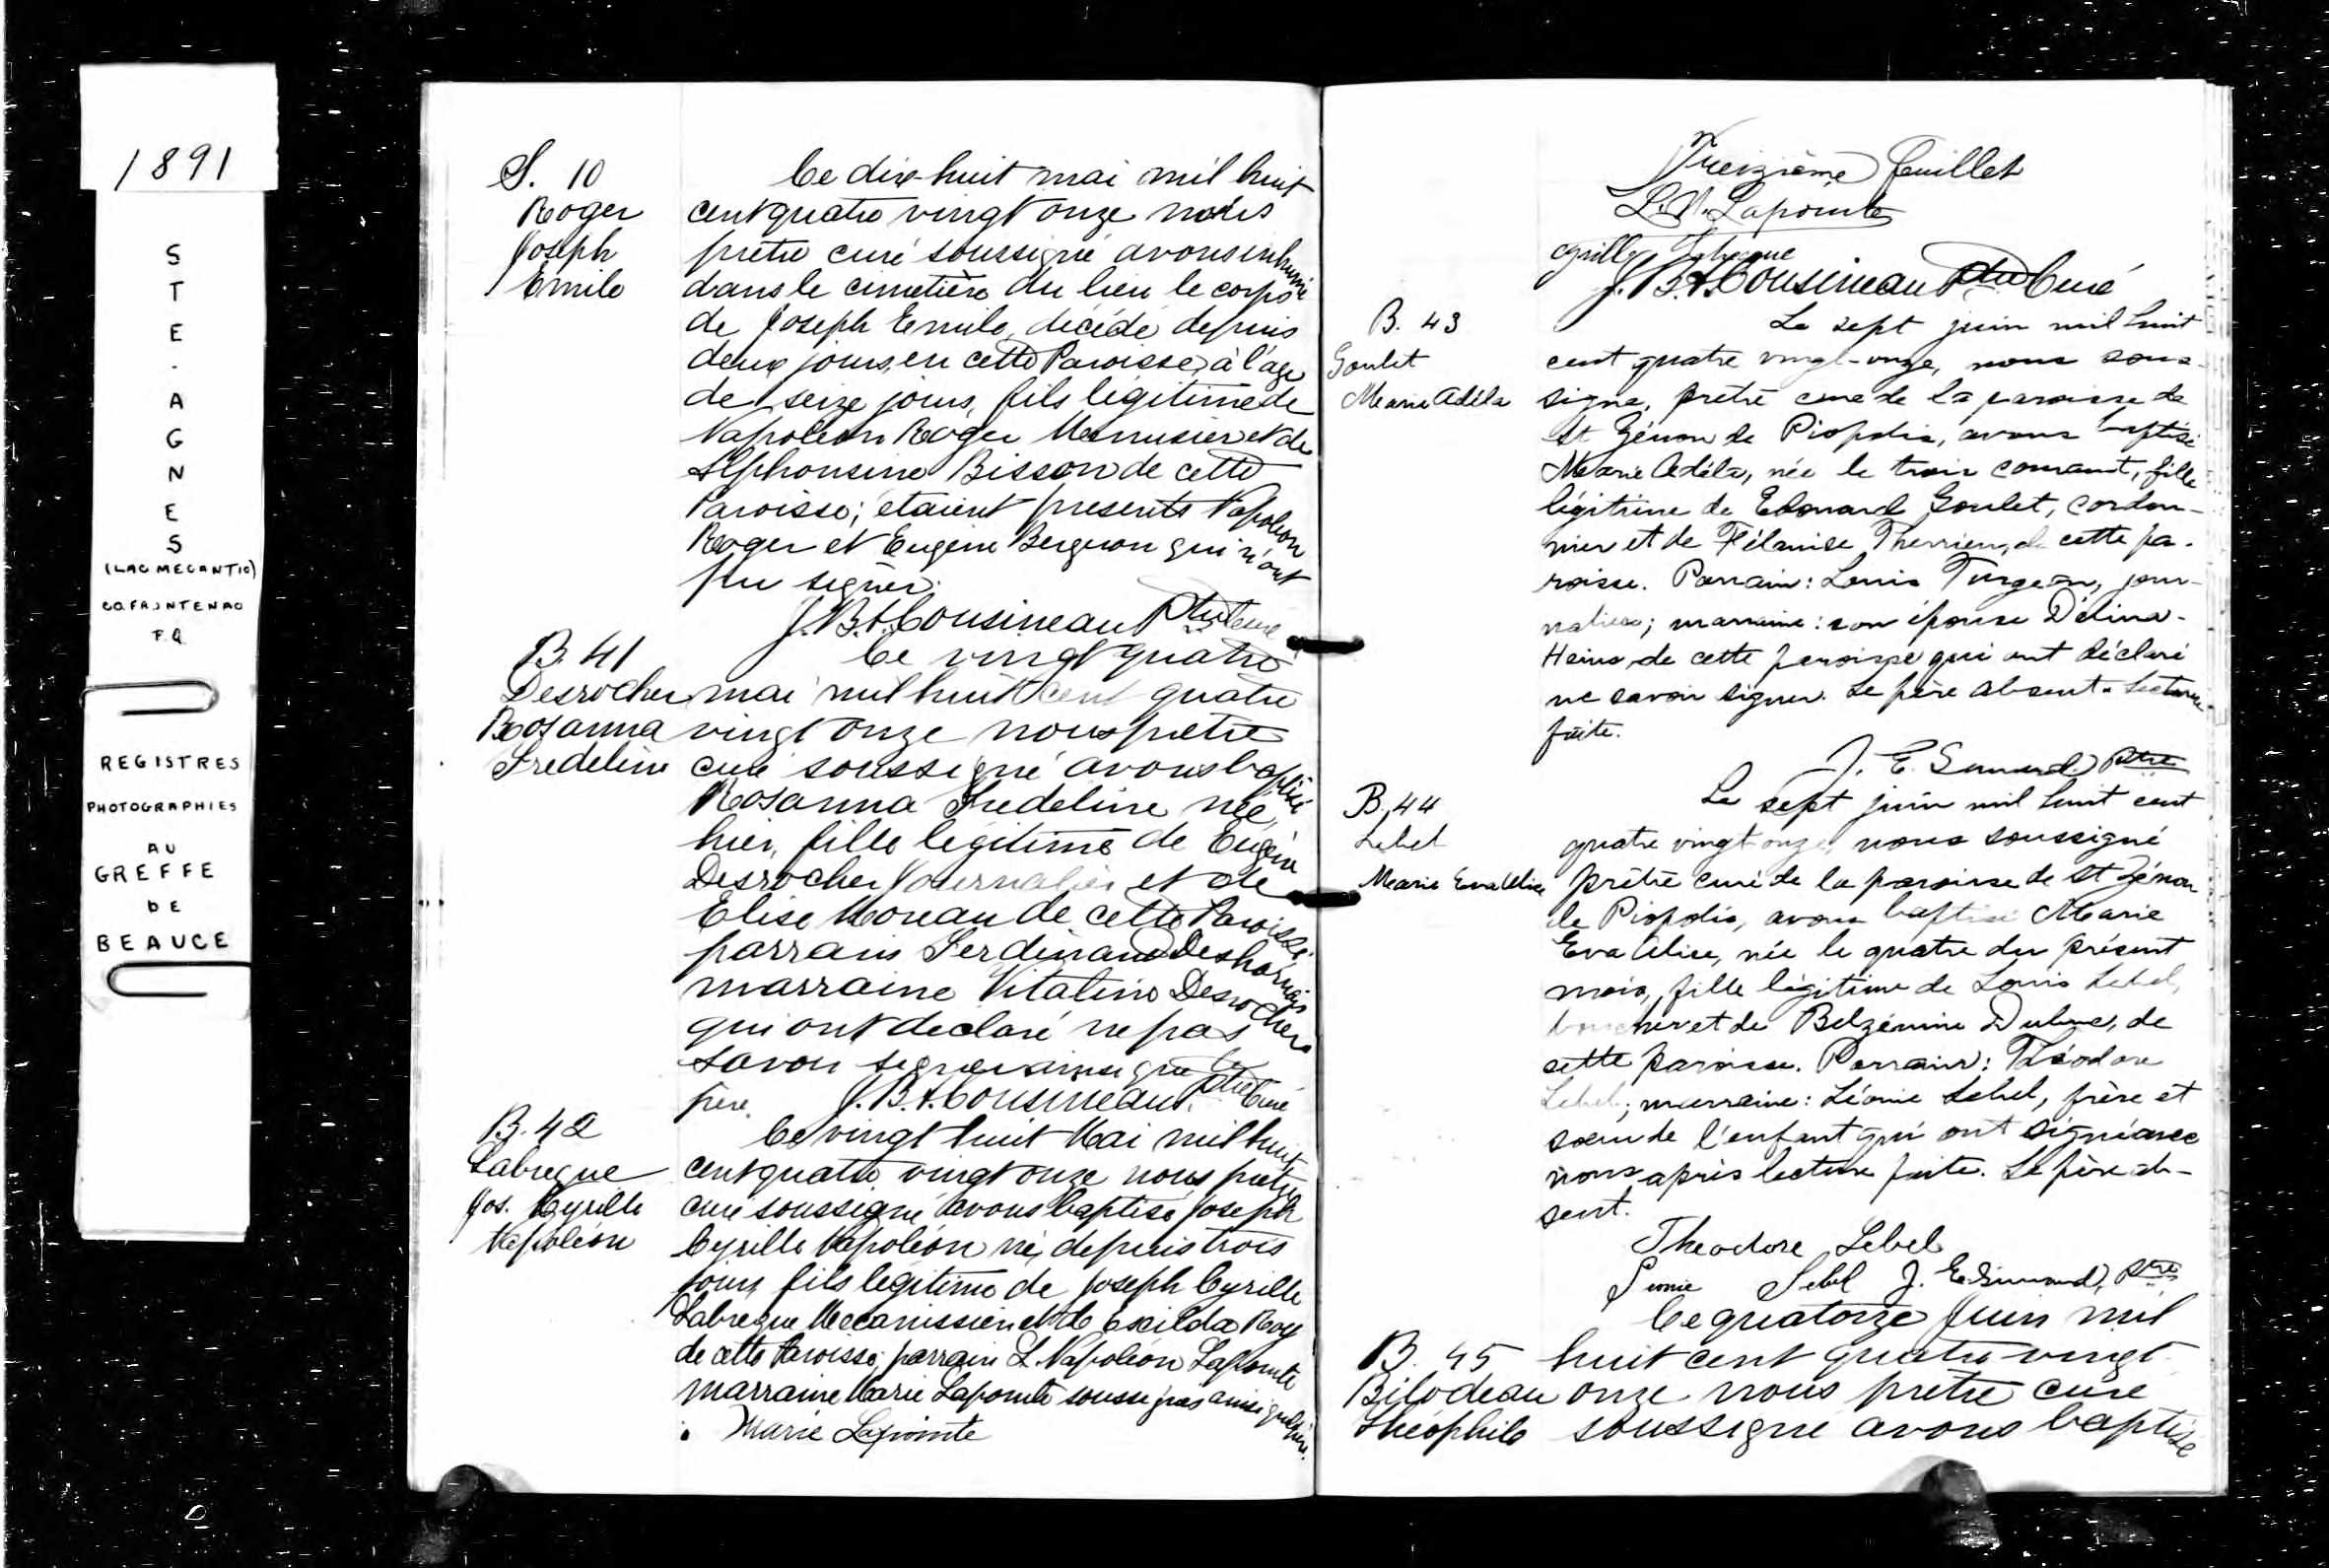 1891
STE. AGNES
(LAC MEGANTIC)
CO. FRONTENAC
P.Q.
REGISTRES
PHOTOGRAPHIES
AU
GREFFE
DE
BEAUCE
S. 10
Roger
Joseph
Emile
Ce dix-huit mai mil huit
cent quatre vingt onze nous
prêtre curé soussigné avons inhumé
dans le cimetière du lieu le corps
de Joseph Emile, décédé depuis
deux jours, en cette Paroisse, à l'age
de seize jours, fils légitime de
Napoléon Roger Menuisier et de
Alphonsine Bisson de cette
Paroisse; etaient presents Napoleon
Roger et Eugène Bergeron qui n'ont
pu signer.
J.B.A. Cousineau Ptre Curé
B. 41
Desrocher
Rosanna
Fredeline
Ce vingt quatre
mai mil huit cent quatre
vingt onze nous pretre
curé soussigné avons baptisé
Rosanna Fredeline née
hier, fille legitime de Eugène
Desrocher Journalier et de
Elise Moreau de cette Paroisse.
parrain Ferdinand Desharnais
marraine Vitaline Desrochers
qui ont declaré ne pas
savoir signer ainsi que le
père. J.B.A. Cousineau Ptre Curé
B. 42
Labreque
Jos. Cyrille
Napoléon
Ce vingt huit Mai mil huit
cent quatre vingt onze nous pretre
curé soussigné avons baptisé Joseph
Cyrille Napoléon né, depuis trois
jours, fils légitime de Joseph Cyrille
Labreque Mecanissien et de Exilda Roy
de cette Paroisse; parrain L. Napoléon Lapointe
marraine Marie Lapointe soussignés ainsi que le père.
Marie Lapointe
Treizième feuillet
L.N. Lapointe
Cyrille Labreque
J.B.A. Cousineau Ptre Curé
B. 43
Goulet
Marie Adéla
Le sept juin mil huit
cent quatre vingt-onze, nous sous-
signé, prêtre curé de la paroisse de
St Zénon de Piopolis, avons baptisé
Marie Adéla, née le trois courant, fille
légitime de Edouard Goulet, cordon-
nier et de Félanise Therrien, de cette pa-
roisse. Parrain: Louis Turgeon, jour-
nalier; marraine: son épouse Délina
de cette paroisse qui ont déclaré
ne savoir signer. Le père absent. Lecture
faite.
J. E. Ptre
B. 44
Lebel
Marie Eva Alice
Le sept juin mil huit cent
quatre vingt onze, nous soussigné
prêtre curé de la paroisse de St Zénon
de Piopolis, avons baptisé Marie
Eva Alice, née le quatre du présent
mois, fille légitime de Louis Lebel,
et de Belzémine Dubé, de
cette paroisse. Parrain: Théodore
Lebel; marraine: Léonie Lebel, frère et
soeur de l'enfant qui ont signé avec
nous après lecture faite. Le père ab-
sent.
Theodore Lebel
Leonie Lebel J. E. Ptre
B. 45
Bilodeau
Theophile
Ce quatorze Juin mil
huit cent quatre vingt
onze nous pretre curé
soussigné avons baptisé